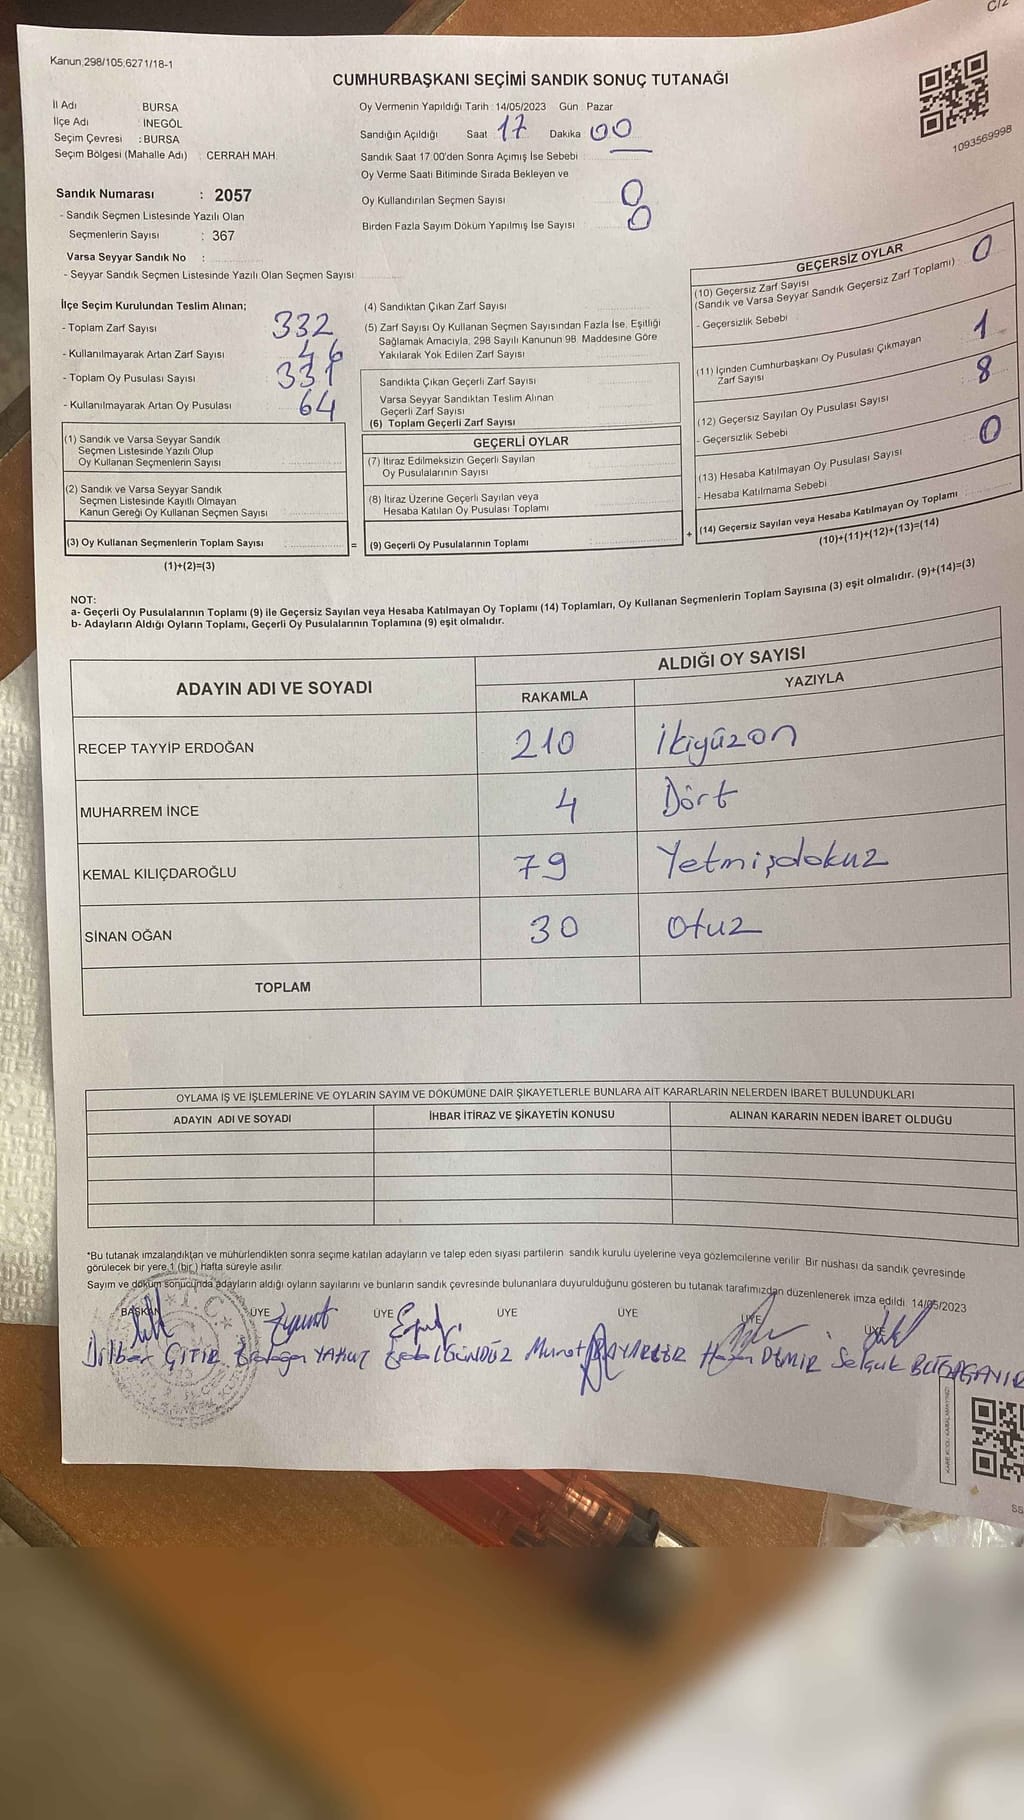 Kanun,298/105,6271/18-1
CUMHURBAŞKANI SEÇİMİ SANDIK SONUÇ TUTANAĞI
1093569998
İl Adı BURSA
İlçe Adı : İNEGÖL
Seçim Çevresi : BURSA
Seçim Bölgesi (Mahalle Adı) : CERRAH MAH.
Oy Vermenin Yapıldığı Tarih : 14/05/2023 Gün : Pazar
Sandığın Açıldığı Saat 17 Dakika 00
Sandık Saat 17.00'den Sonra Açımış İse Sebebi
Oy Verme Saati Bitiminde Sırada Bekleyen ve
Oy Kullandırılan Seçmen Sayısı 0
Birden Fazla Sayım Döküm Yapılmış İse Sayısı 0
Sandık Numarası : 2057
- Sandık Seçmen Listesinde Yazılı Olan
Seçmenlerin Sayısı : 367
Varsa Seyyar Sandık No :
- Seyyar Sandık Seçmen Listesinde Yazılı Olan Seçmen Sayısı
İlçe Seçim Kurulundan Teslim Alınan;
- Toplam Zarf Sayısı 332
- Kullanılmayarak Artan Zarf Sayısı 46
- Toplam Oy Pusulası Sayısı
- Kullanılmayarak Artan Oy Pusulası 64
(1) Sandık ve Varsa Seyyar Sandık
Seçmen Listesinde Yazılı Olup
Oy Kullanan Seçmenlerin Sayısı
(2) Sandık ve Varsa Seyyar Sandık
Seçmen Listesinde Kayıtlı Olmayan
Kanun Gereği Oy Kullanan Seçmen Sayısı
(3) Oy Kullanan Seçmenlerin Toplam Sayısı
(1)+(2)=(3)
(4) Sandıktan Çıkan Zarf Sayısı
(5) Zarf Sayısı Oy Kullanan Seçmen Sayısından Fazla İse, Eşitliği
Sağlamak Amacıyla, 298 Sayılı Kanunun 98. Maddesine Göre
Yakılarak Yok Edilen Zarf Sayısı
Sandıkta Çıkan Geçerli Zarf Sayısı
Varsa Seyyar Sandıktan Teslim Alınan
Geçerli Zarf Sayısı
(6) Toplam Geçerli Zarf Sayısı
GEÇERLİ OYLAR
(7) İtiraz Edilmeksizin Geçerli Sayılan
Oy Pusulalarının Sayısı
(8) İtiraz Üzerine Geçerli Sayılan veya
Hesaba Katılan Oy Pusulası Toplamı
= (9) Geçerli Oy Pusulalarının Toplamı
GEÇERSİZ OYLAR
(10) Geçersiz Zarf Sayısı
(Sandık ve Varsa Seyyar Sandık Geçersiz Zarf Toplamı) 0
- Geçersizlik Sebebi
(11) İçinden Cumhurbaşkanı Oy Pusulası Çıkmayan
Zarf Sayısı 1
(12) Geçersiz Sayılan Oy Pusulası Sayısı 8
- Geçersizlik Sebebi
(13) Hesaba Katılmayan Oy Pusulası Sayısı 0
- Hesaba Katılmama Sebebi
+ (14) Geçersiz Sayılan veya Hesaba Katılmayan Oy Toplamı
(10)+(11)+(12)+(13)=(14)
NOT:
a- Geçerli Oy Pusulalarının Toplamı (9) ile Geçersiz Sayılan veya Hesaba Katılmayan Oy Toplamı (14) Toplamları, Oy Kullanan Seçmenlerin Toplam Sayısına (3) eşit olmalıdır. (9)+(14)=(3)
b- Adayların Aldığı Oyların Toplamı, Geçerli Oy Pusulalarının Toplamına (9) eşit olmalıdır.
ADAYIN ADI VE SOYADI ALDIĞI OY SAYISI
RAKAMLA YAZIYLA
RECEP TAYYİP ERDOĞAN 210 ikiyüzon
MUHARREM İNCE 4 Dört
KEMAL KILIÇDAROĞLU 79 Yetmişdokuz
SİNAN OĞAN 30 otuz
TOPLAM
OYLAMA İŞ VE İŞLEMLERİNE VE OYLARIN SAYIM VE DÖKÜMÜNE DAİR ŞİKAYETLERLE BUNLARA AİT KARARLARIN NELERDEN İBARET BULUNDUKLARI
ADAYIN ADI VE SOYADI İHBAR İTİRAZ VE ŞİKAYETİN KONUSU ALINAN KARARIN NEDEN İBARET OLDUĞU
*Bu tutanak imzalandıktan ve mühürlendikten sonra seçime katılan adayların ve talep eden siyasi partilerin sandık kurulu üyelerine veya gözlemcilerine verilir. Bir nüshası da sandık çevresinde
görülecek bir yere 1 (bir) hafta süreyle asılır.
Sayım ve döküm sonucunda adayların aldığı oyların sayılarını ve bunların sandık çevresinde bulunanlara duyurulduğunu gösteren bu tutanak tarafımızdan düzenlenerek imza edildi. 14/05/2023
BAŞKAN ÜYE ÜYE ÜYE ÜYE ÜYE ÜYE
Dilber ÇITIR Erdoğan YAKUT GÜNDÜZ Murat DEMİR Selçuk